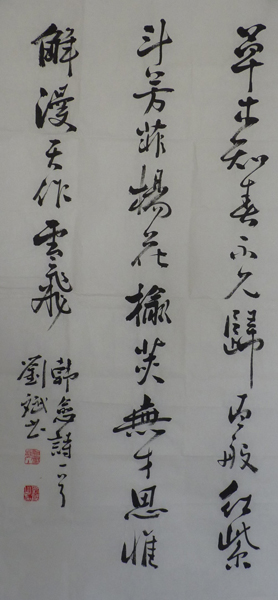 草木知春不久歸百般红紫
斗芳菲楊花榆荚無才思惟
解漫天作雪飛
韓愈詩一首
劉斌书